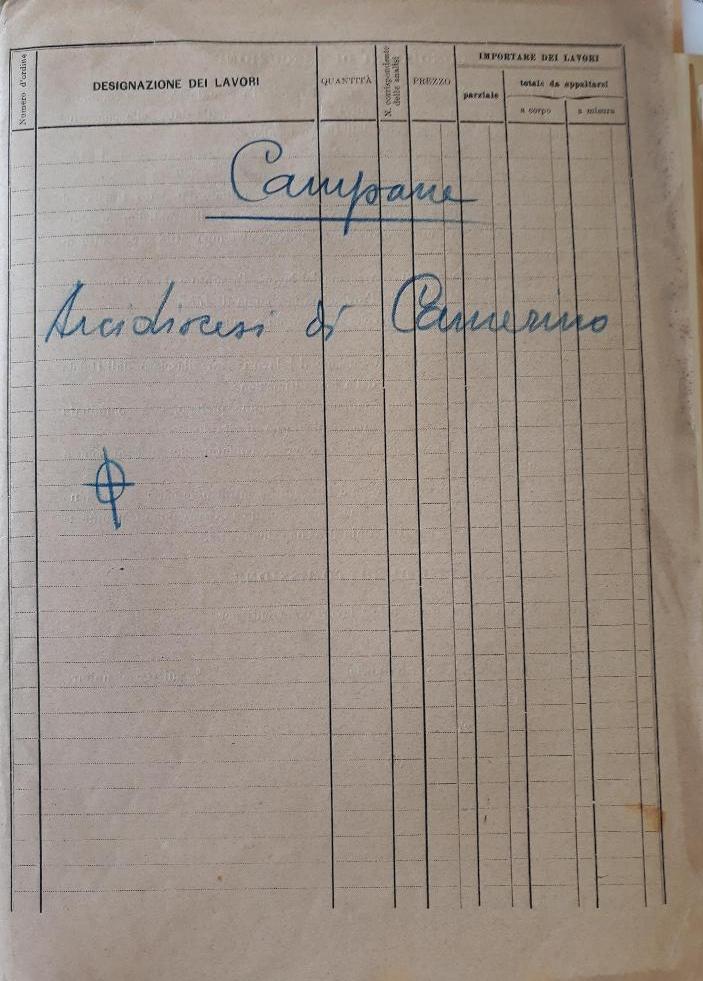 Numero d'ordine
DESIGNAZIONE DEI LAVORI
QUANTITÀ
N. corrispondente
delle analisi
PREZZO
IMPORTARE DEI LAVORI
parziale
totale da appaltarsi
a corpo
a misura
Campane
Arcidiocesi di Camerino